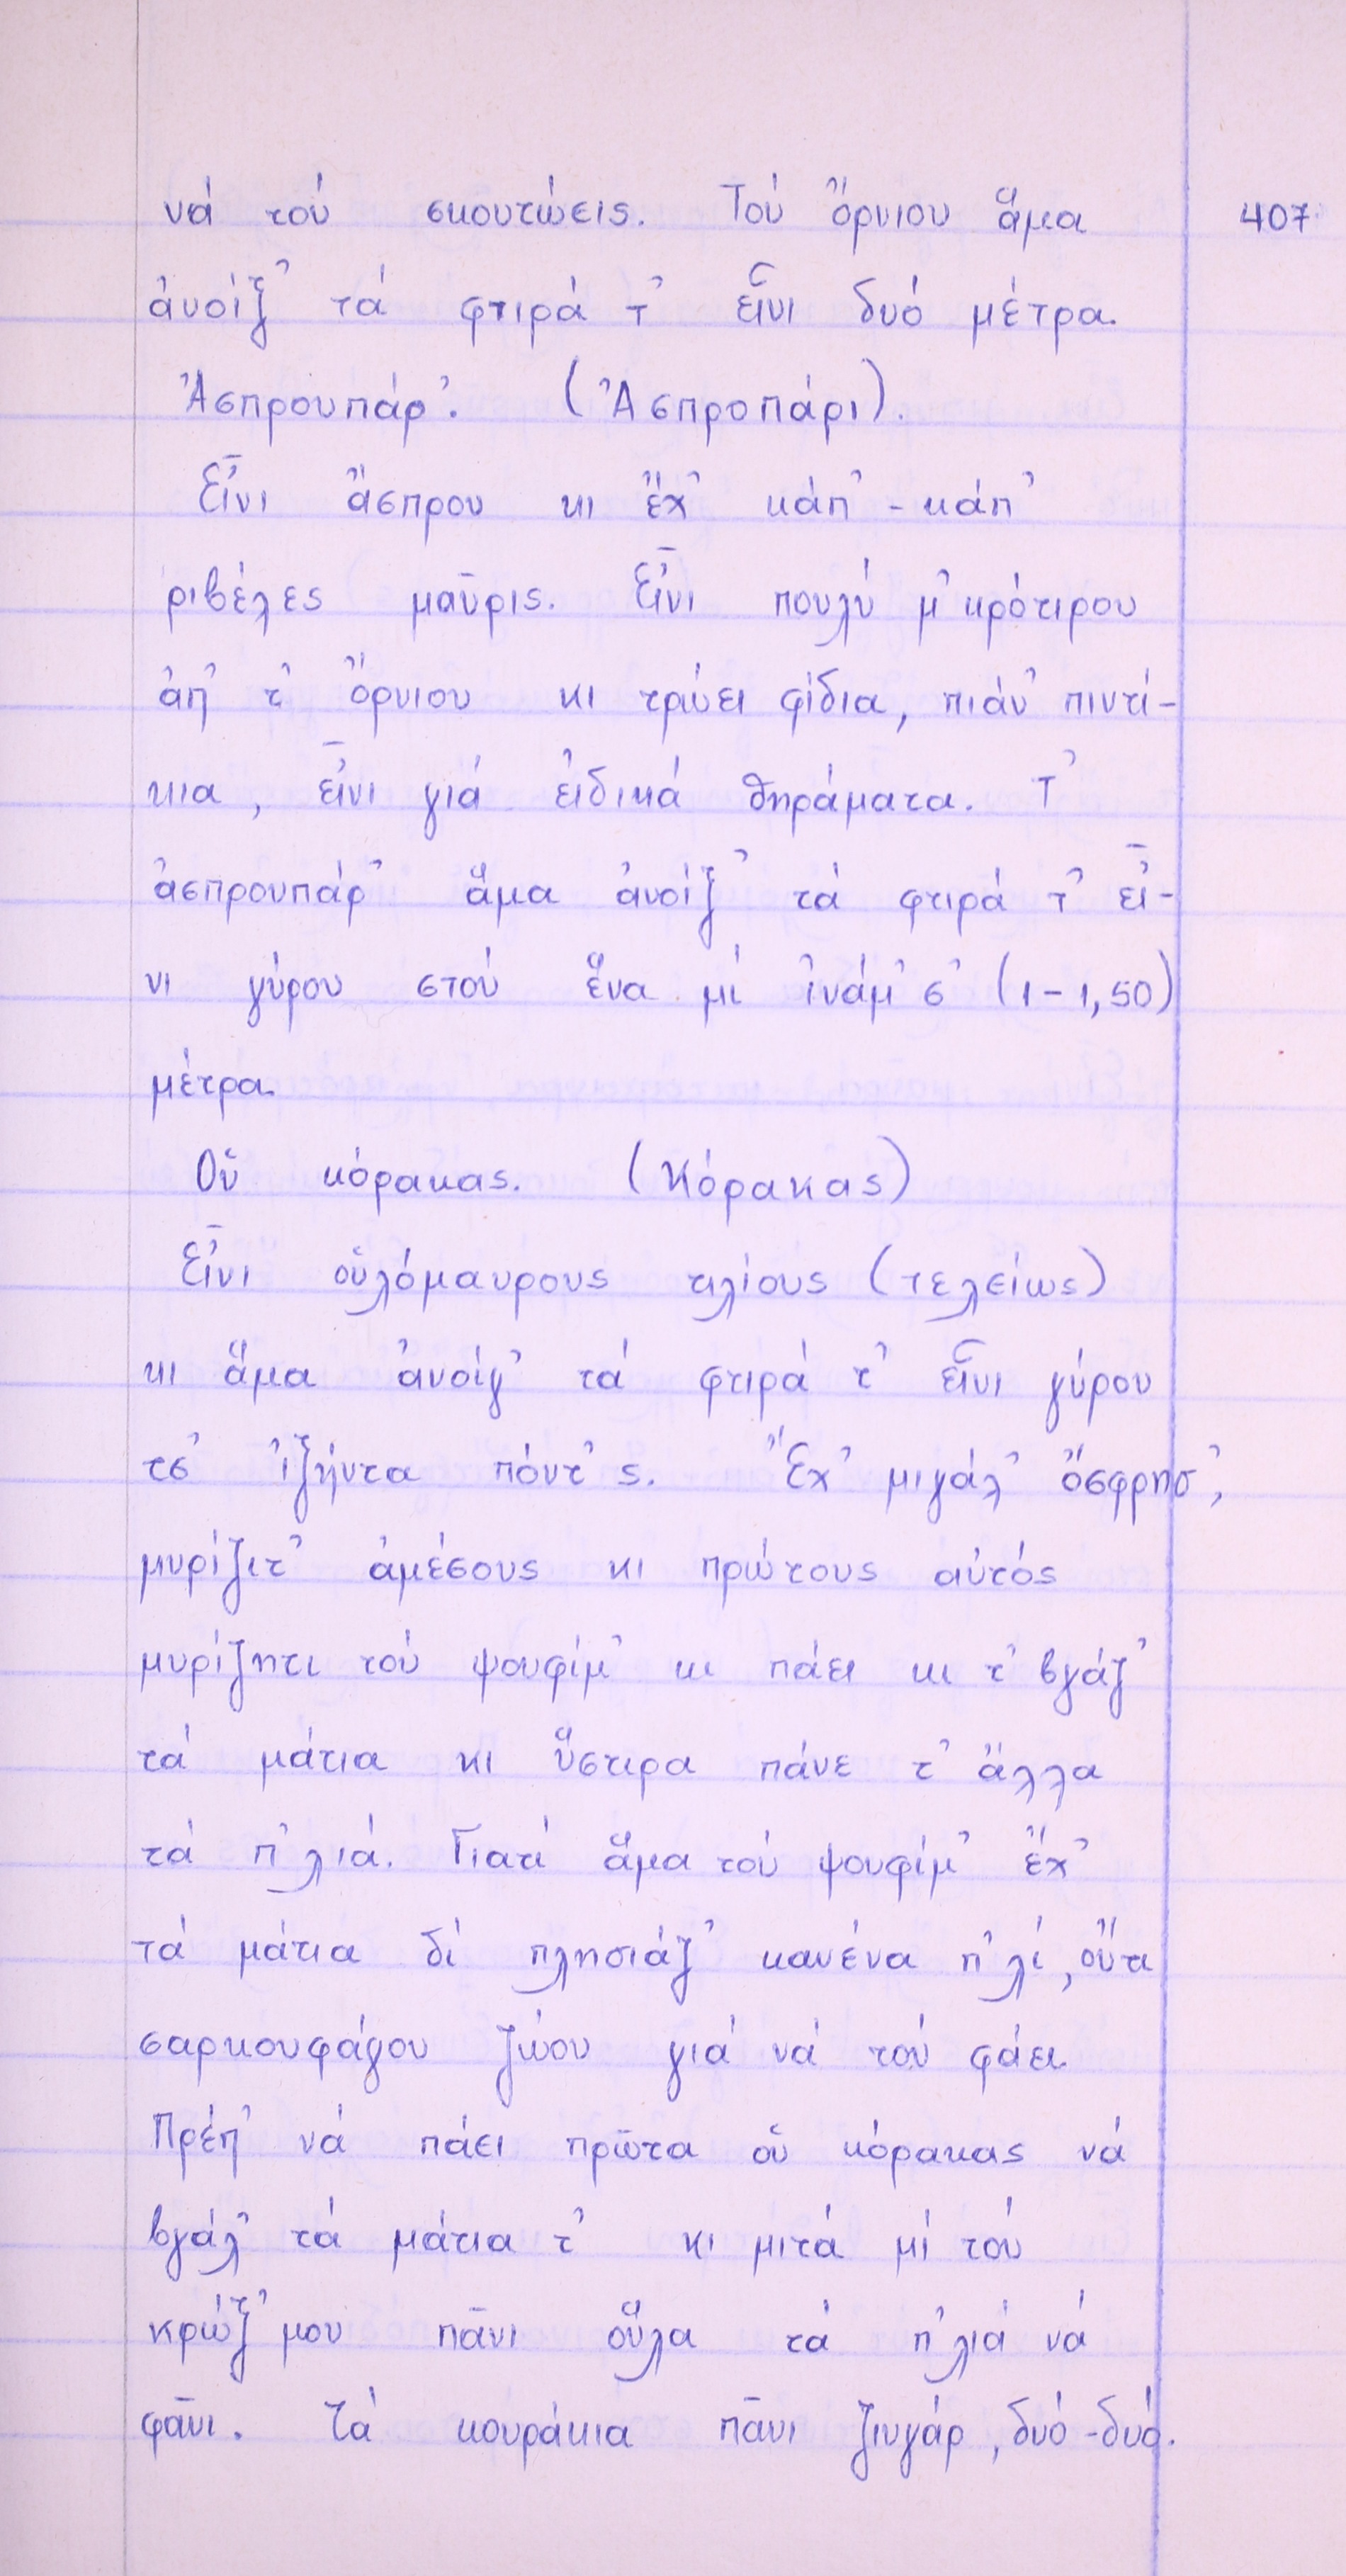 νά τού σκουτώεις. Τού ὄρνιου ἅμα 407
ἀνοίξ᾽ τά φτιρά τ᾽ εἶνι δυό μέτρα.
Ἀσπρουπάρ᾽. (Ἀσπροπάρι).
Εἶνι ἄσπρου κι ἔχ᾽ κάπ᾽-κάπ᾽
ριβέλες μαῦρις. Εἶνι πουλύ μ᾽κρότιρου
ἀπ᾽ τ᾽ ὄρνιου κι τρώει φίδια, πιάν᾽ πιντί-
κια, εἶνι γιά εἰδικά θηράματα. Τ᾽
ἀσπρουπάρ᾽ ἅμα ἀνοίξ᾽ τά φτιρά τ᾽ εἶ-
νι γύρου στού ἕνα μί ἰνάμ᾽σ᾽ (1-1,50)
μέτρα.
Οὑ κόρακας. (Κόρακας)
Εἶνι οὑλόμαυρους τιλίους (τελείως)
κι ἅμα ἀνοίγ᾽ τά φτιρά τ᾽ εἶνι γύρου
τσ᾽ ἰξήντα πόντ᾽ς. Ἔχ᾽ μιγάλ᾽ ὄσφρησ᾽,
μυρίζιτ᾽ ἀμέσους κι πρώτους αὐτός
μυρίζητι τού ψουφίμ᾽ κι πάει κι τ᾽ βγάζ᾽
τά μάτια κι ὕστιρα πάνε τ᾽ ἄλλα
τά π᾽λιά. Γιατί ἅμα τού ψουφίμ᾽ ἔχ᾽
τά μάτια δί πλησιάζ᾽ κανένα π᾽λί, οὔτι
σαρκουφάγου ζώου γιά νά τού φάει.
Πρέπ᾽ νά πάει πρῶτα οὑ κόρακας νά
βγάλ᾽ τά μάτια τ᾽ κι μιτά μί τού
κρώξ᾽μου πᾶνι οὕλα τά π᾽λιά νά
φᾶνι. Τά κουράκια πᾶνι ζιυγάρ, δυό-δυό.